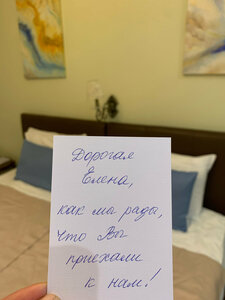 Дорогая
Елена,
как мы рады,
что Вы
приехали
к нам!